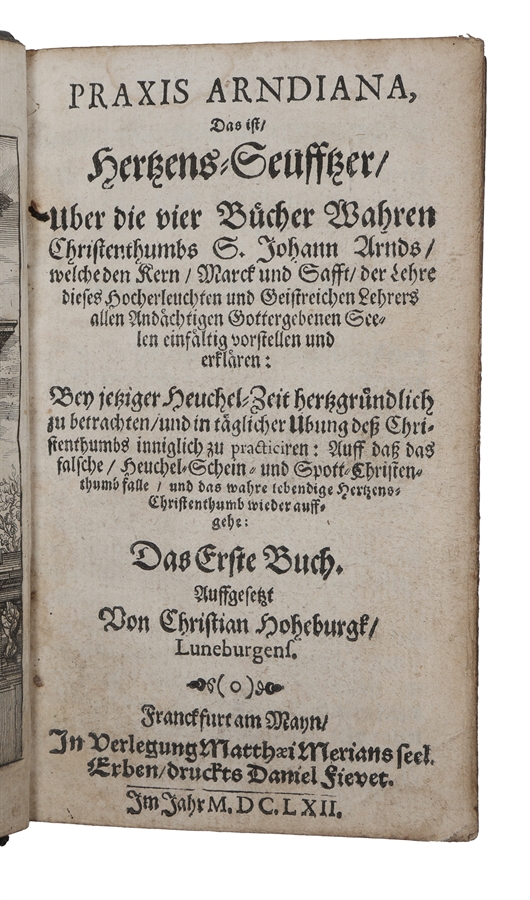 PRAXIS ARNDIANA,
Das ist/
Hertzens-Seufftzer/
Uber die vier Bücher Wahren
Christenthumbs S. Johann Arnds/
welche den Kern / Marck und Safft/ der Lehre
dieses Hocherleuchten und Geistreichen Lehrers
allen Andächtigen Gottergebenen See-
len einfältig vorstellen und
erklären:
Bey jetziger Heuchel-Zeit hertzgründlich
zu betrachten/und in täglicher Ubung deß Chri-
stenthumbs inniglich zu practiciren: Auff daß das
falsche/ Heuchel-Schein- und Spott-Christen-
thumb falle / und das wahre lebendige Hertzens-
Christenthumb wieder auff-
gehe:
Das Erste Buch.
Auffgesetzt
Von Christian Hoheburgk/
Luneburgens.
(o)
Franckfurt am Mayn/
In Verlegung Matthæi Merians seel.
Erben/druckts Daniel Fievet.
Im Jahr M. DC. LXII.